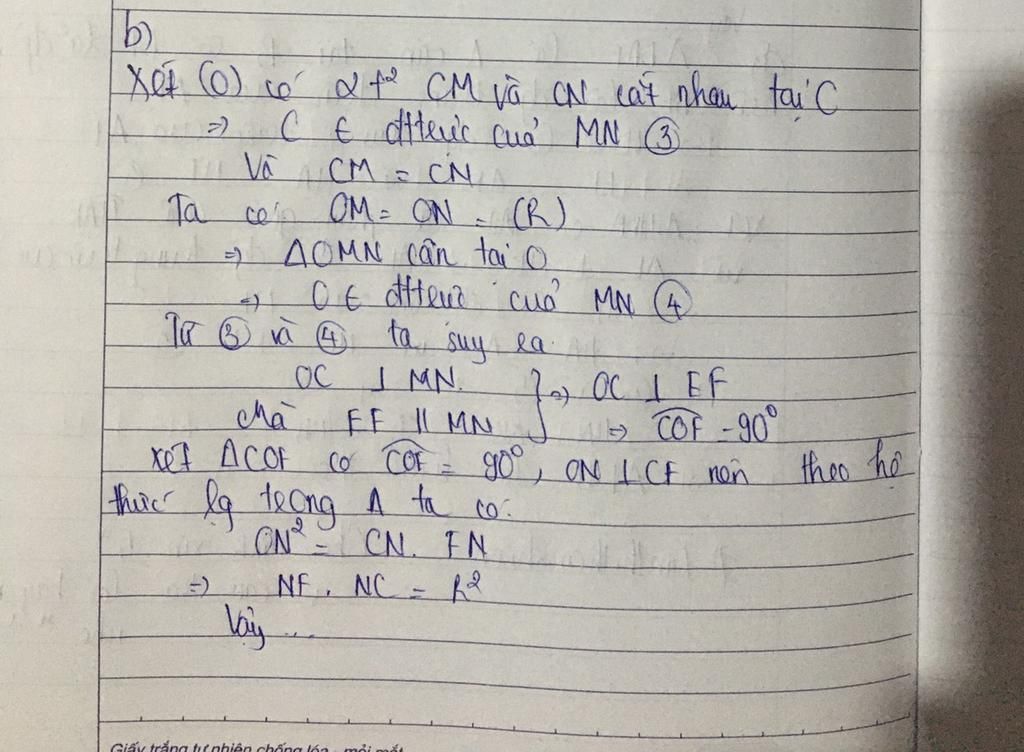 b)
Xét (O) có 2 t² CM và CN cắt nhau tại C
=> C ∈ đttrực của MN ③
Và CM = CN
Ta có OM = ON = (R)
=> ΔOMN cân tại O
=> O ∈ đttrực của MN ④
Từ ③ và ④ ta suy ra
OC ⊥ MN. } => OC ⊥ EF
Mà EF // MN => COF = 90°
xét ΔCOF có COF = 90°, ON ⊥ CF nên theo hệ
thức lg trong Δ ta có:
ON² = CN. FN
=> NF. NC = R²
Vậy ...
Giấy trắng tự nhiên chống lóa - mỏi mắt